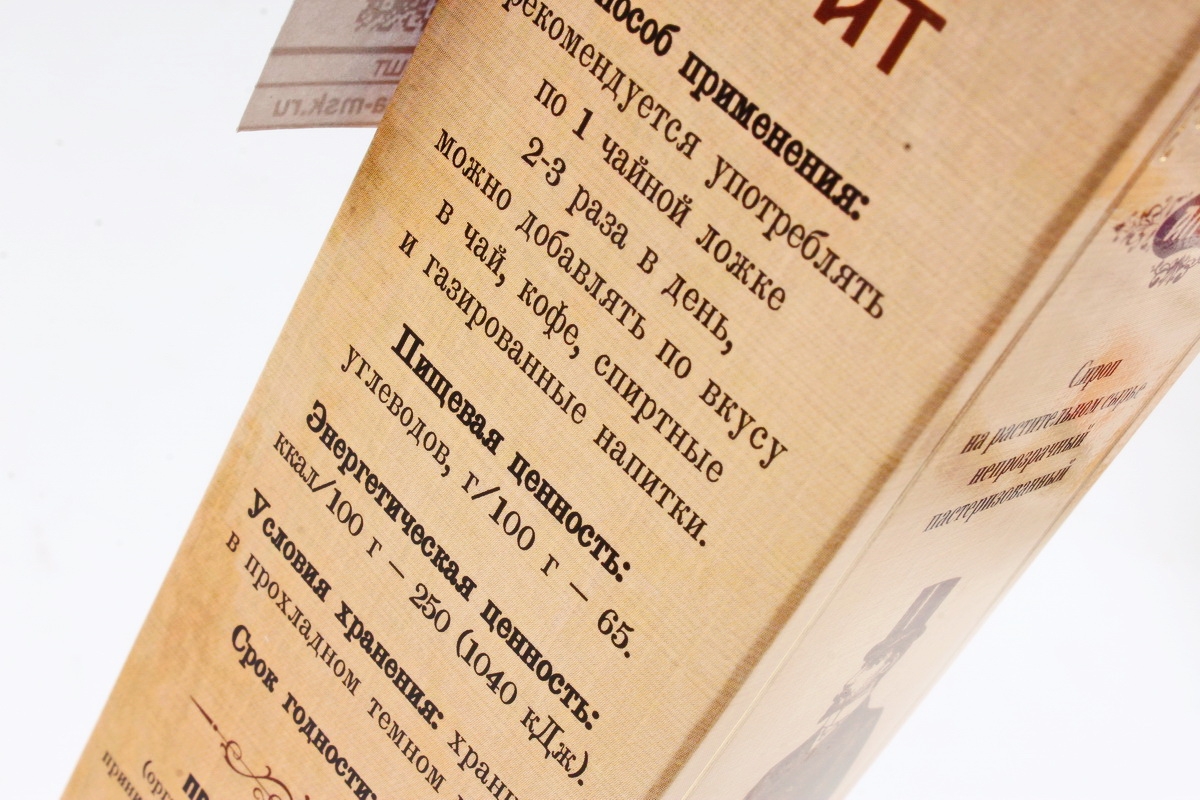 способ применения:
рекомендуется употреблять
по 1 чайной ложке
2-3 раза в день,
можно добавлять по вкусу
в чай, кофе, спиртные
и газированные напитки.
Пищевая ценность:
углеводов, г/100 г – 65.
Энергетическая ценность:
ккал/100 г – 250 (1040 кДж).
Условия хранения:
в прохладном темном
Срок годности:
Сироп
на растительном сырье
непрозрачный
пастеризованный
шт
a-msk.ru